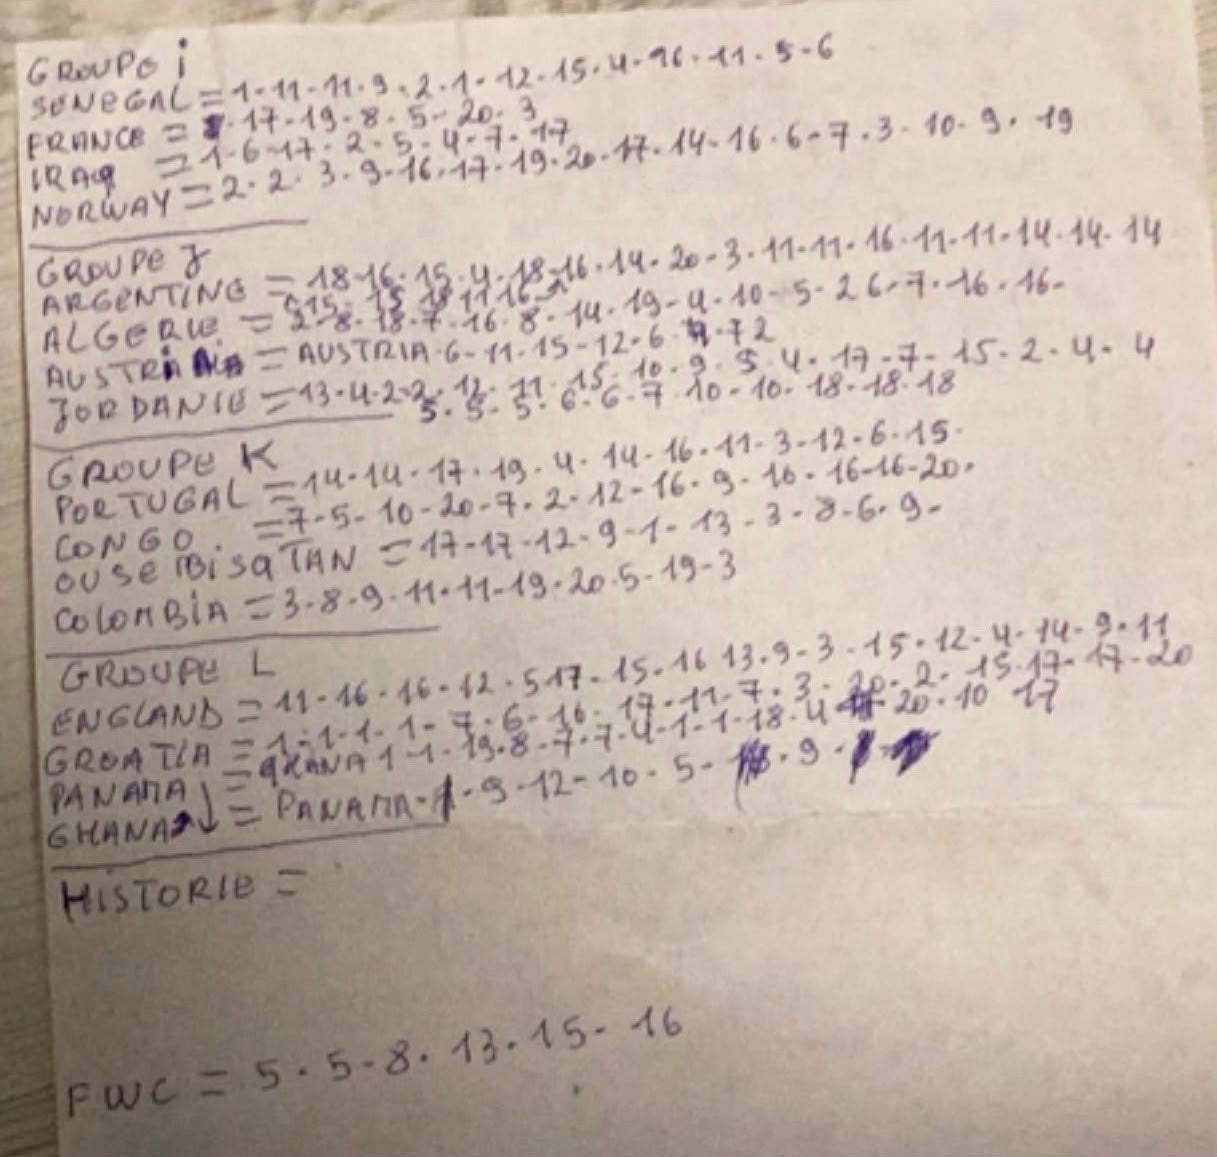 GROUPE i
SENEGAL = 1-11-11-9.2.1-12-15.4-16.11.5-6
FRANCE = 17-19-8-5-20.3
IRAQ = 1-6-17.2-5-4-7-17
NORWAY = 2.2.3.9-16.17-19-20.17.14-16.6-7.3.10.9.19
GROUPE J
ARGENTINE = 18-16.15.4.18-16.14.20-3.11-11.16.11-11-14.14.14
15.15 18 11 16
ALGERIE = 2-8.18.7.16.8-14.19-4.10-5.26-7.16.16-
AUSTRiA = AUSTRIA.6-11-15-12.6.-72
JORDANIE = 13.4.2-2.12.11.15.10.9.5.4.17-7-15.2.4.4
5.5-5.6-6.7.10-10.18.18.18
GROUPE K
PORTUGAL = 14-14.17.19.4.14-16.11-3-12.6.15.
CONGO. = 7-5-10-20-7.2.12-16.9-10.16-16-20.
OUSEBiSQTAN = 17-17-12-9-1-13-3-8-6.9-
COLOMBiA = 3-8-9.11.11-19.20.5-19-3
GROUPE L
ENGLAND = 11-16-16-12.5 17-15.16 13.9-3.15.12-4-14-9.11
GROATIA = 1-1-1-1-7.6-16.17-11-7.3.20-2-15.17-17-20
PANAMA = GHANA 1-1-19.8-7-7-4-1-1-18.4 20.10 17
GHANA = PANAMA-9-12-10.5-.9-
HiSTORIE =
FWC = 5.5-8.13.15-16